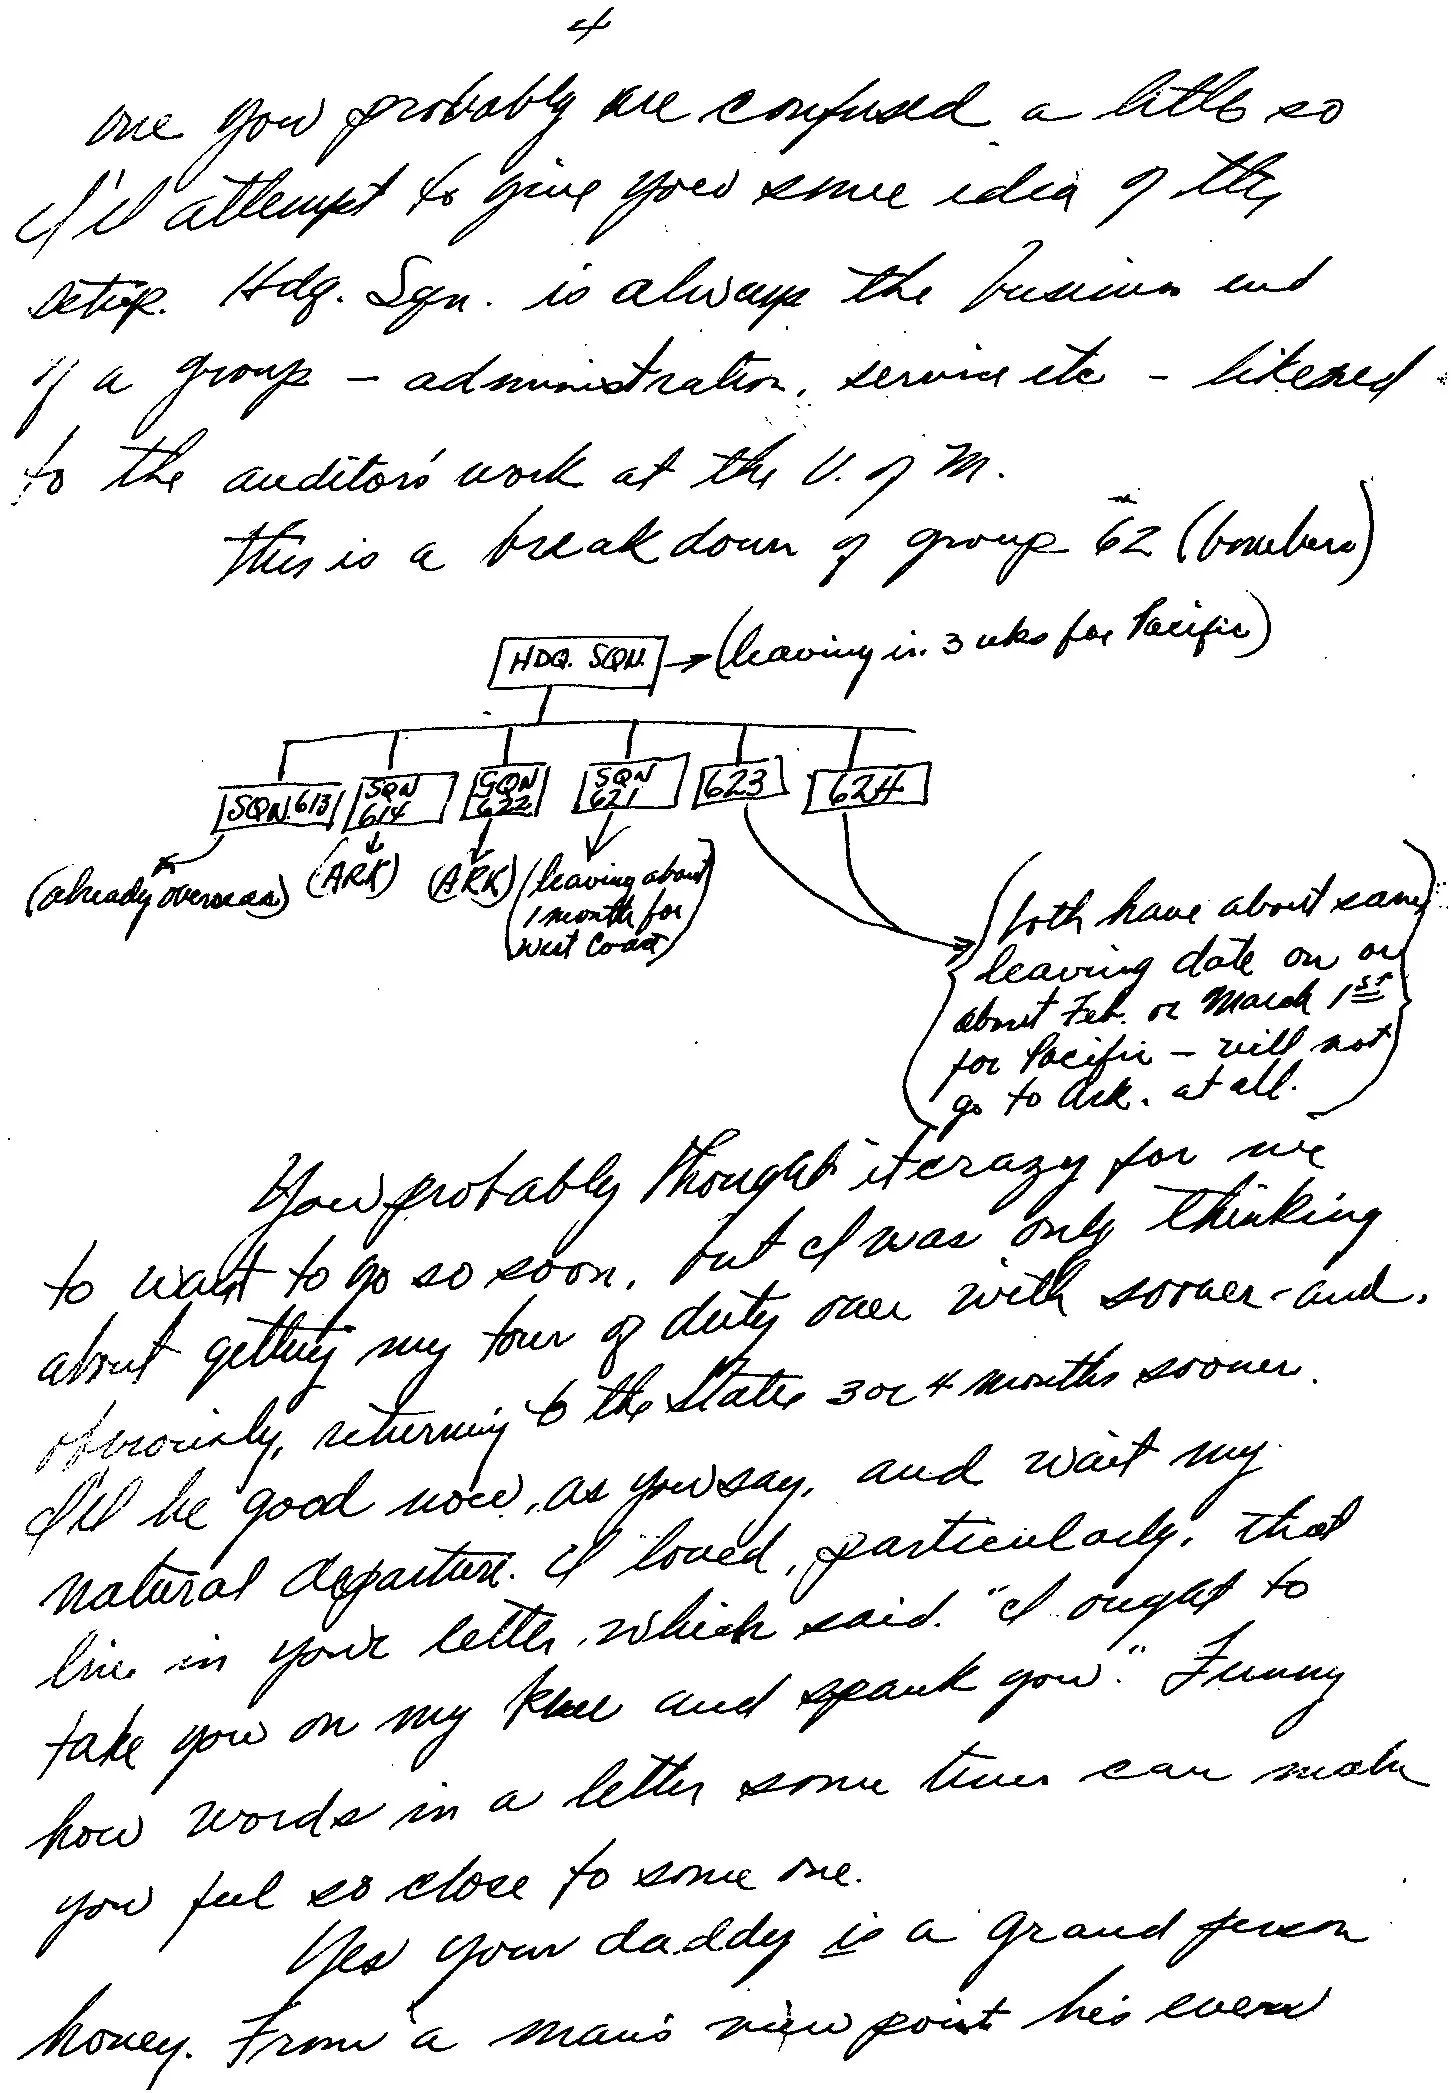 4
one you probably are confused a little so
I'll attempt to give you some idea of the
setup. Hdq. Sqn. is always the business end
of a group – administration, service etc – likened
to the auditor's work at the U. of M.
This is a breakdown of group 62 (bombers)
HDQ. SQN. → (leaving in 3 wks for Pacific)
SQN. 613 SQN 614 SQN 622 SQN 621 623 624
(already overseas) (ARK) (ARK) (leaving about
1 month for
West Coast)
(both have about same
leaving date on or
about Feb. or March 1st
for Pacific – will not
go to Ark. at all.)
You probably thought it crazy for me
to want to go so soon, but I was only thinking
about getting my tour of duty over with sooner - and,
obviously, returning to the States 3 or 4 months sooner.
I'll be good now, as you say, and wait my
natural departure. I loved, particularly, that
line in your letter, which said. "I ought to
take you on my knee and spank you". Funny
how words in a letter some times can make
you feel so close to some one.
Yes your daddy is a grand person
honey. From a man's view point he's even